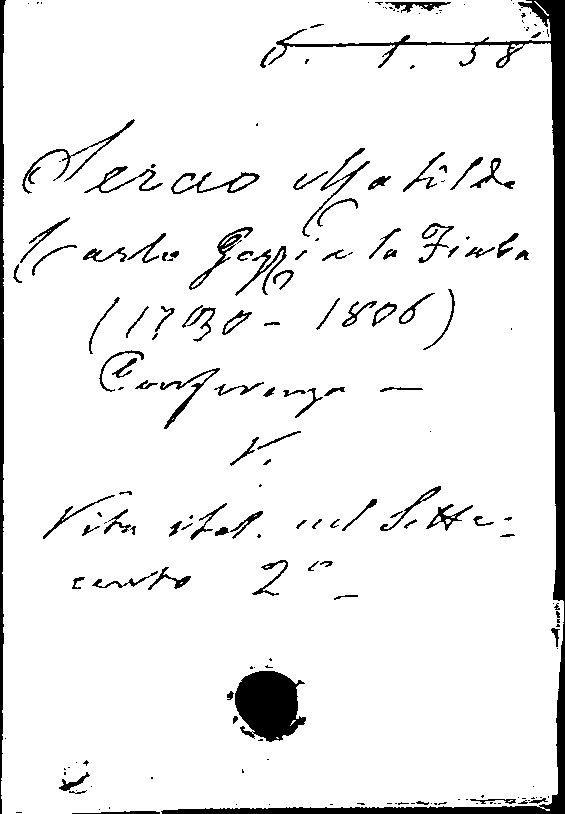 6. 1. 58
Serao Matilde
Carlo Gozzi e la Fiaba
(1730 - 1806)
Conferenza —
V.
Vita ital. nel Sette-
cento 2° —